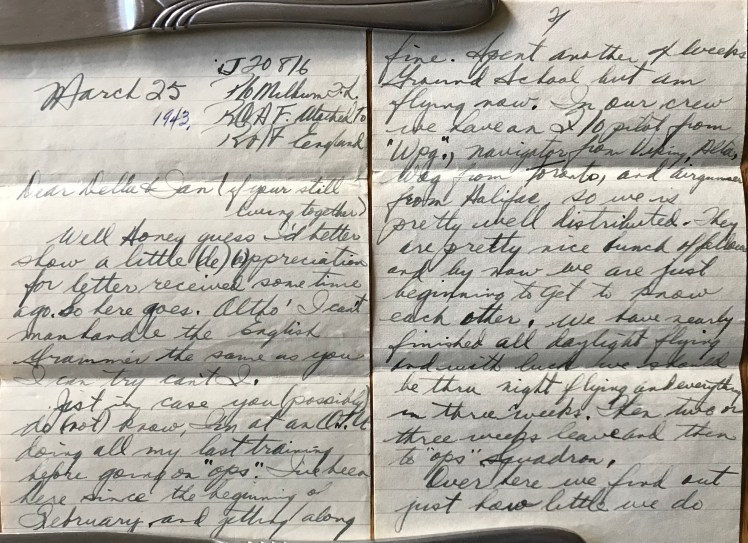 March 25
1943.
J20816
F/O Milburn
R.C.A.F. Attached to
R.A.F. England
Dear Della & Ian (if your still
living together)
Well Honey guess I'd better
show a little (de)(b)appreciation
for letter received some time
ago. So here goes. Altho' I can't
man handle the English
Grammer the same as you
I can try can't I.
Just in case you (possibly)
do (not) know, I'm at an O.T.U
doing all my last training
before going on "ops". I've been
here since the beginning of
February and getting along
2/
fine. Spent another of weeks
Ground School but am
flying now. In our crew
we have an F/O pilot from
"Wpg.", navigator from Viking, Alta,
Wag from Toronto, and airgunner
from Halifac, so we is
pretty well distributed. They
are pretty nice bunch of fellows
and by now we are just
beginning to get to know
each other. We have nearly
finished all daylight flying
and with luck we should
be thru night flying and everything
in three weeks. Then two or
three weeks leave and then
to "ops" squadron.
Over here we find out
just how little we do